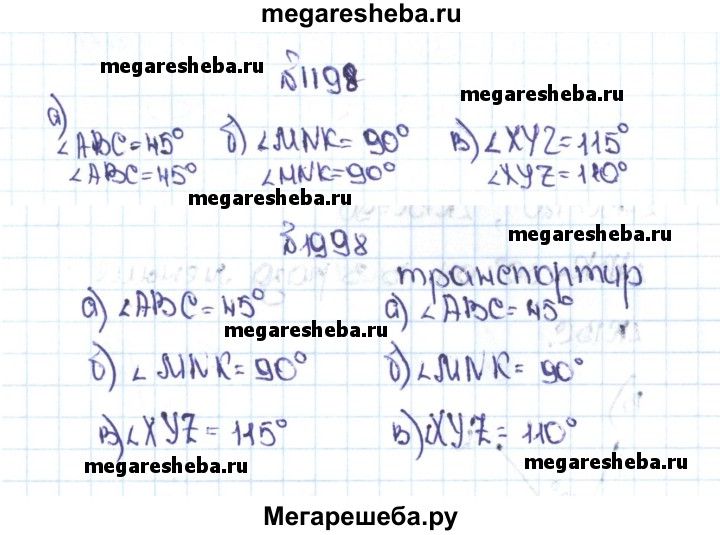 megaresheba.ru
megaresheba.ru
№1198
megaresheba.ru
а)
∠ABC=45° б) ∠MNK=90° в) ∠XYZ=115°
∠ABC=45° ∠MNK=90° ∠XYZ=110°
megaresheba.ru
№1998
megaresheba.ru
транспортир
а) ∠ABC=45° а) ∠ABC=45°
megaresheba.ru megaresheba.ru
б) ∠MNK=90° б) ∠MNK=90°
в) ∠XYZ=115° в) ∠XYZ=110°
megaresheba.ru megaresheba.ru
Мегарешеба.ру